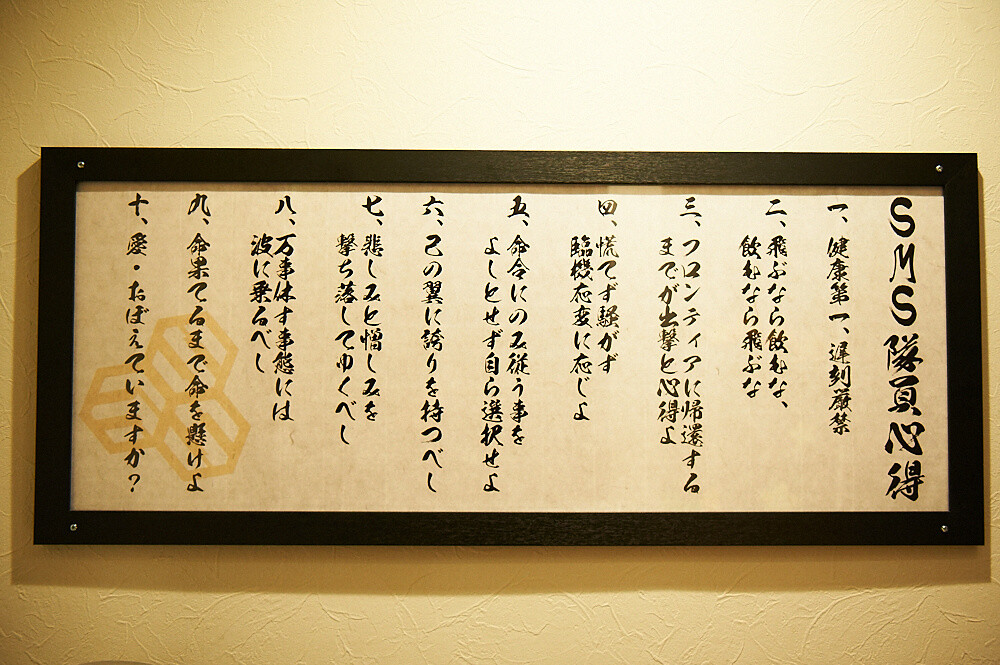 SMS隊員心得
一、健康第一、遅刻厳禁
二、飛ぶなら飲むな、
飲むなら飛ぶな
三、フロンティアに帰還する
までが出撃と心得よ
四、慌てず騒がず
臨機応変に応じよ
五、命令にのみ従う事を
よしとせず自ら選択せよ
六、己の翼に誇りを持つべし
七、悲しみと憎しみを
撃ち落してゆくべし
八、万事休す事態には
波に乗るべし
九、命果てるまで命を懸けよ
十、愛・おぼえていますか？